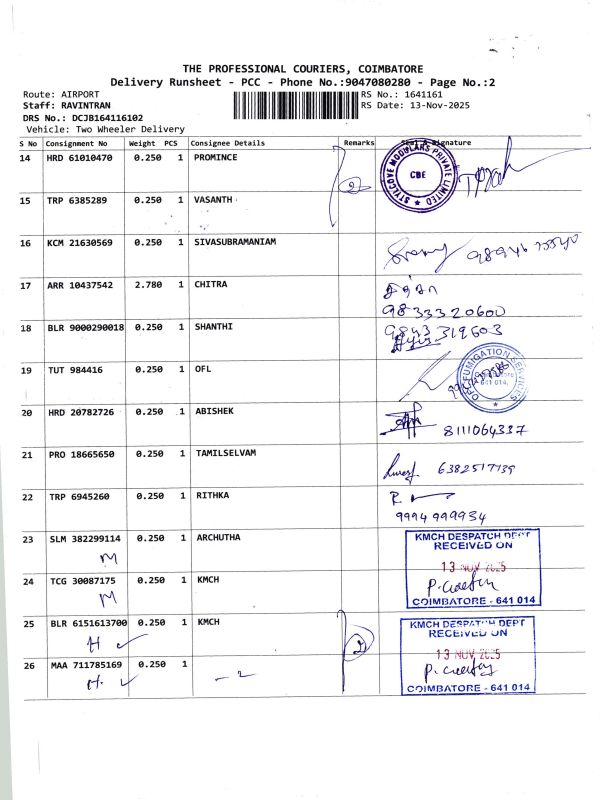 THE PROFESSIONAL COURIERS, COIMBATORE
Delivery Runsheet - PCC - Phone No.:9047080280 - Page No.:2
Route: AIRPORT RS No.: 1641161
Staff: RAVINTRAN RS Date: 13-Nov-2025
DRS No.: DCJB164116102
Vehicle: Two Wheeler Delivery
S No Consignment No Weight PCS Consignee Details Remarks Seal & Signature
14 HRD 61010470 0.250 1 PROMINCE
2
STYLCOVE MODULARS PRIVATE LIMITED
CBE
15 TRP 6385289 0.250 1 VASANTH
16 KCM 21630569 0.250 1 SIVASUBRAMANIAM
17 ARR 10437542 2.780 1 CHITRA
சித்ரா
9833320600
18 BLR 9000290018 0.250 1 SHANTHI
9843319603
19 TUT 984416 0.250 1 OFL
FUMIGATION SERVICES
641 014.
20 HRD 20782726 0.250 1 ABISHEK
8111064337
21 PRO 18665650 0.250 1 TAMILSELVAM
6382517139
22 TRP 6945260 0.250 1 RITHKA
R
9994999934
23 SLM 382299114 0.250 1 ARCHUTHA
M
KMCH DESPATCH DEPT
RECEIVED ON
13 NOV 2025
COIMBATORE - 641 014
24 TCG 30087175 0.250 1 KMCH
M
25 BLR 6151613700 0.250 1 KMCH
H ✓
2
KMCH DESPATCH DEPT
RECEIVED ON
13 NOV 2025
COIMBATORE - 641 014
26 MAA 711785169 0.250 1
H. ✓
- 2